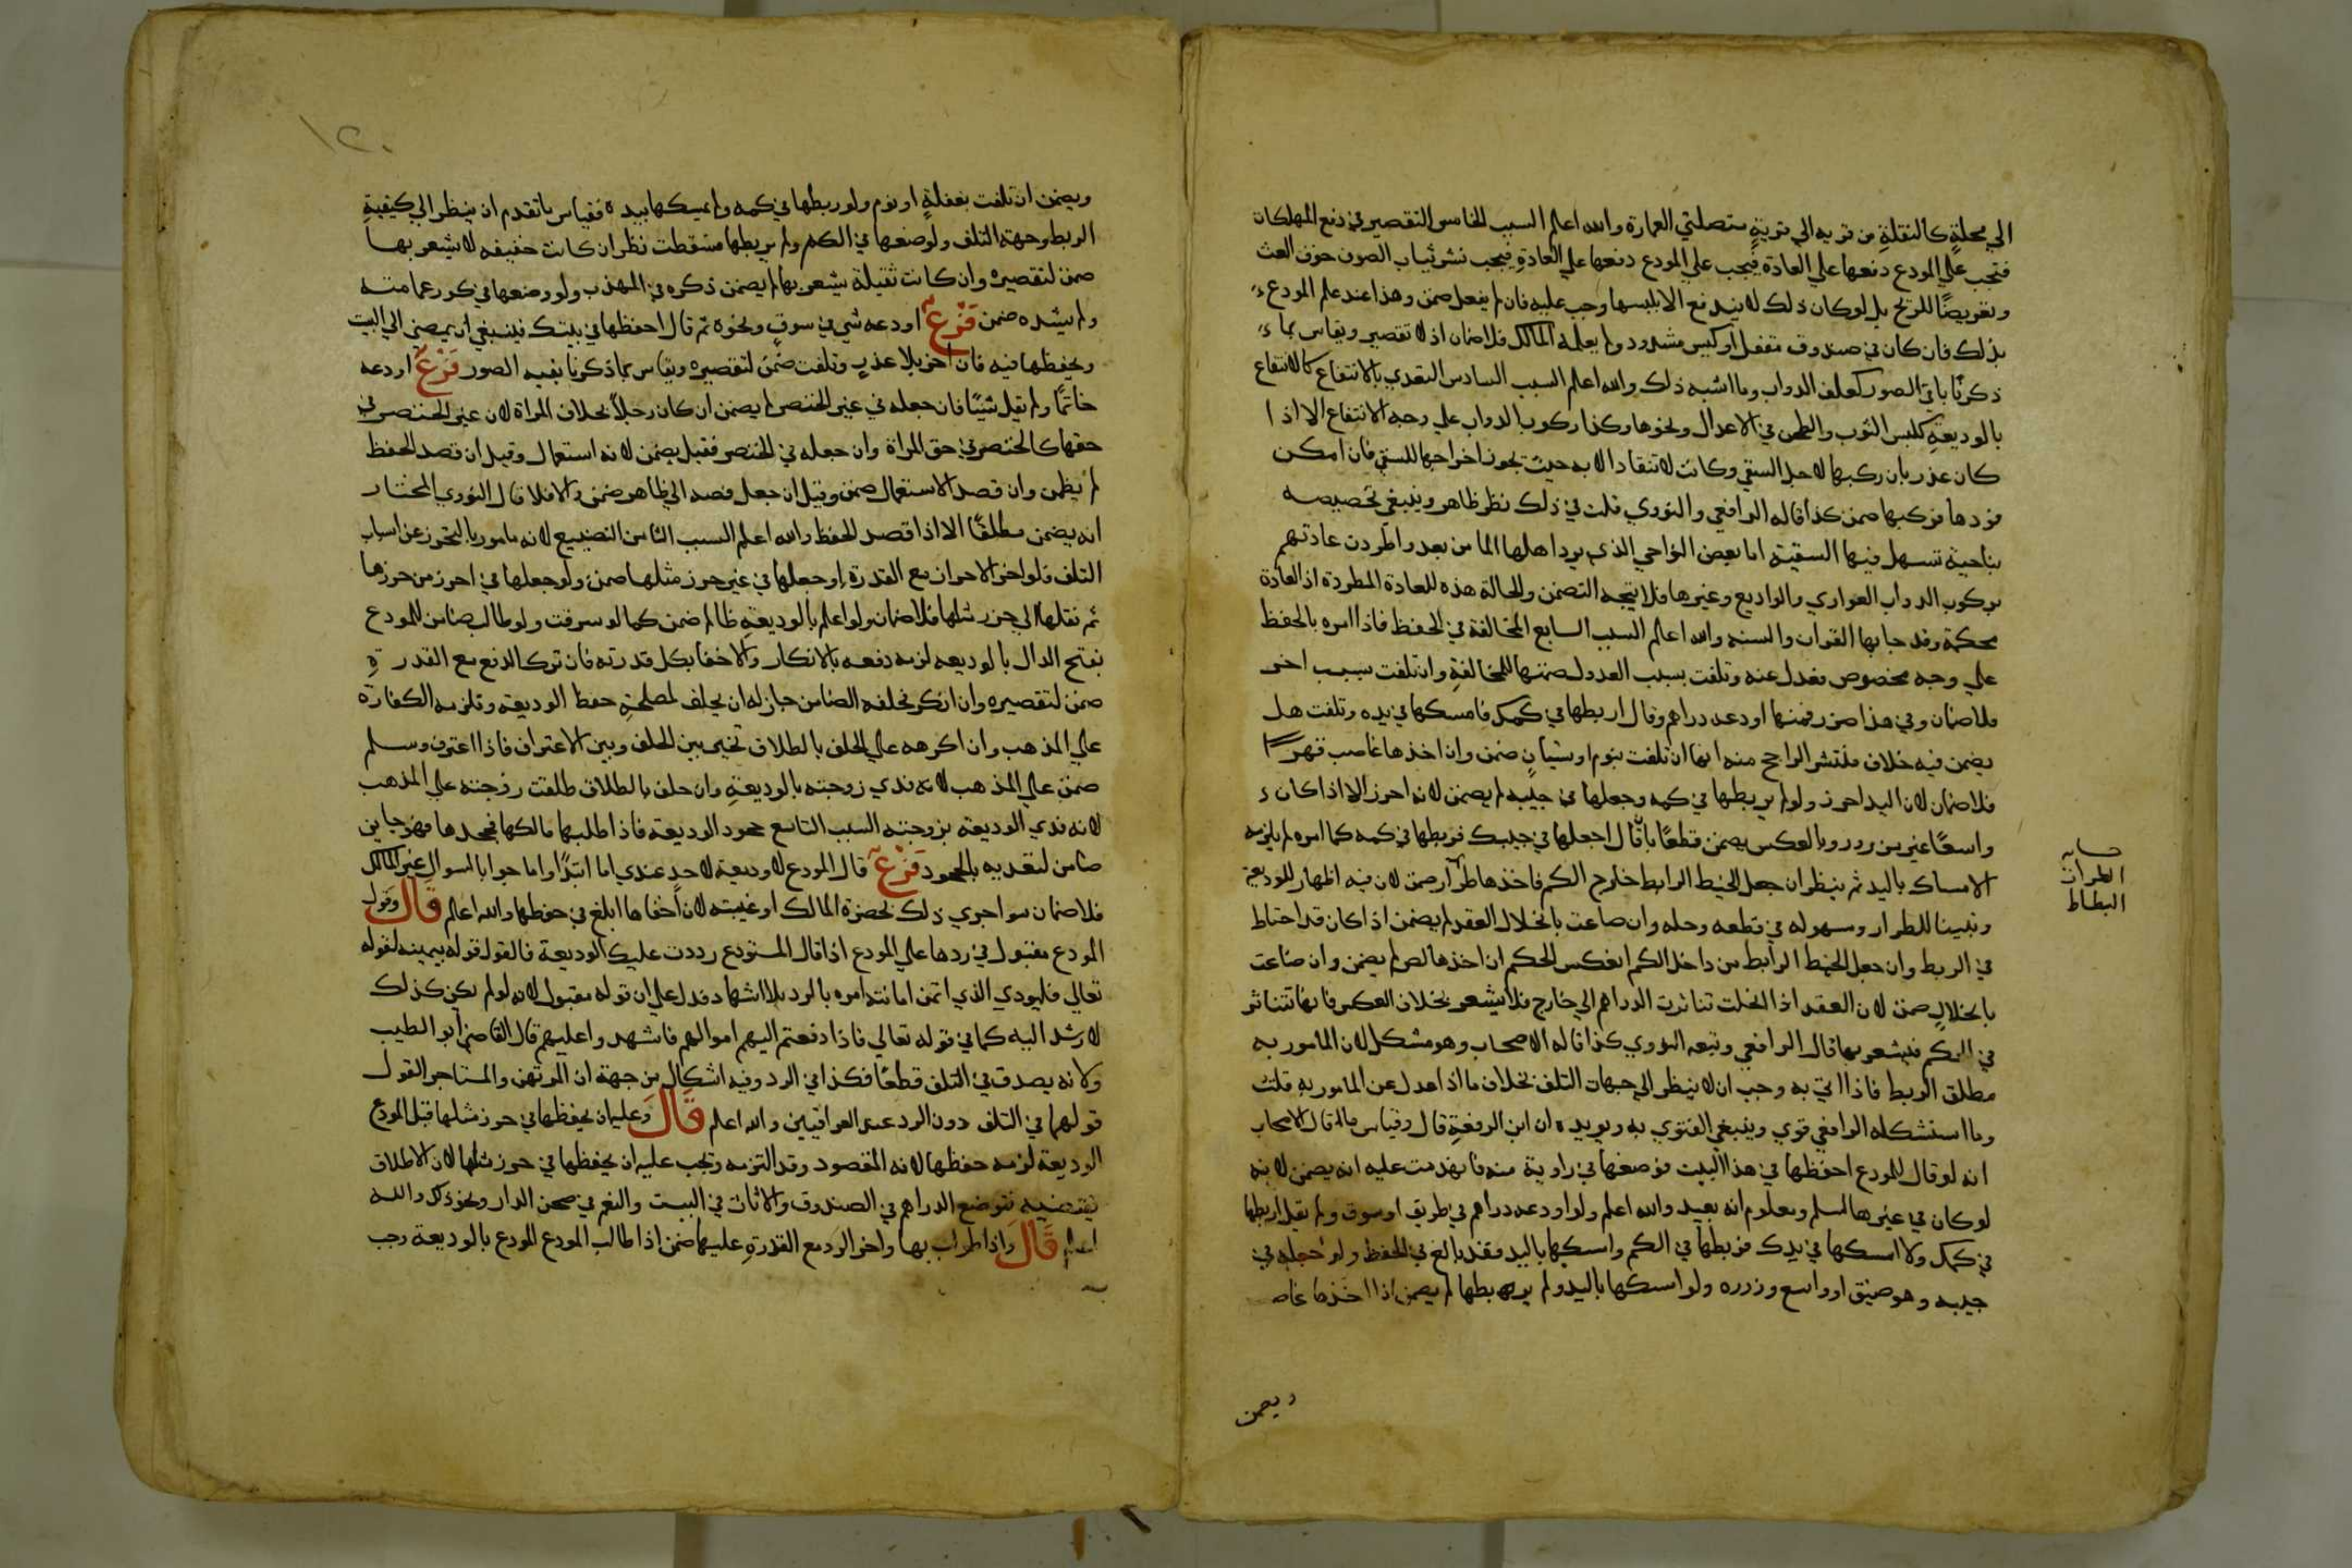 الي محلةٍ كالنقلةِ من قريه الي قريةٍ متصلتي العمارة والله اعلم السبب الخامس التقصير في دفع المهلكات
فتجب علي المودع دفعها علي العادة فيجب علي المودع دفعها علي العادةِ فيجب نشر ثياب الصوف خوف العث
وتعريضًا للريح بل لو كان ذلك لا يندفع الا بلبسها وجب عليه فان لم يفعل ضمن وهذا عند علم المودع
بذلك فان كان في صندوق مقفل او كيس مشدود ولم يعلمه المالك فلا ضمان اذ لا تقصير ويقاس بما
ذكرنا باقي الصور كعلف الدواب وما اشبه ذلك والله اعلم السبب السادس التعدي بالانتفاع كالانتفاع
بالوديعةِ كلبس الثوب والطحن في الاعدال ونحوها وكذا ركوب الدواب علي وجه الانتفاع الا اذا
كان عذر بان ركبها لاجل السقي وكانت لا تنقاد الا به حيث يجوز اخراجها للسقي فان امكن
قودها فركبها ضمن كذا قاله الرافعي والنووي قلت في ذلك نظر ظاهر وينبغي تخصيصه
بناحية تسهل فيها السقية اما بعض النواحي الذي يرد اهلها الما من بعد واطردت عادتهم
بركوب الدواب العواري والوادیع وغيرها فلا يتجه التضمن والحالة هذه للعادة المطردة اذ العادة
محكمة وقد جا بها القران والسنه والله اعلم السبب السابع المخالفة في الحفظ فاذا امره بالحفظ
علي وجه مخصوص فعدل عنه وتلفت بسبب العدول ضمنها للمخالفةِ وان تلفت بسبب اخر
فلا ضمان وفي هذا صور فمنها اودعه دراهم وقال اربطها في كمك فامسكها في يده وتلفت هل
يضمن فيه خلاف منتشر الراجح منه انها ان تلفت بنوم او نسيانٍ ضمن وان اخذها غاصب قهرًا
فلا ضمان لان اليد احرز ولو لم يربطها في كمه وجعلها في جيبه لم يضمن لانه احرز الا اذا كان
واسعًا غير مزرور وبالعكس يضمن قطعًا بان قال اجعلها في جيبك فربطها في كمه كما امره لم يلزمه
الامساك باليد ثم ينظر ان جعل الخيط الرابط خارج الكم فاخذها طرار ضمن لان فيه اظهار للوديعة
وتنبيها للطرار وسهوله في قطعه وحله وان ضاعت بانحلال العقد لم يضمن اذا كان قد احتاط
في الربط وان جعل الخيط الرابط من داخل الكم انعكس الحكم ان اخذها لص لم يضمن وان ضاعت
بانحلالٍ ضمن لان العقد اذا انحلت تناثرت الدراهم الي خارج فلا يشعر بخلاف العكس فانها تتناثر
في الكم فيشعر بها قال الرافعي وتبعه النووي كذا قاله الاصحاب وهو مشكل لان المامور به
مطلق الربط فاذا اتي به وجب ان لا ينظر الي جهات التلف بخلاف ما اذا عدل عن المامور به قلت
وما استشكله الرافعي قوي وينبغي الفتوي به ويويده ان ابن الرفعةِ قال وقياس ما قال الاصحاب
انه لو قال للمودع احفظها في هذا البيت فوضعها في زاوية منه فانهدمت عليه انه يضمن لانه
لو كان في غيرها لسلم ومعلوم انه بعيد والله اعلم ولو اودعه دراهم في طريق او سوق ولم يقل اربطها
في كمك ولا امسكها في يدك فربطها في الكم وامسكها باليد فقد بالغ في الحفظ ولو جعلها في
جيبه وهو ضيق او واسع وزرره ولو امسكها باليد ولم يربطها لم يضمن اذا اخذها غاصب
ويضمن
الطرار
البطاط
١٢٠
ويضمن ان تلفت بغفلةٍ او نوم ولو ربطها في كمه ولم يمسكها بيده فقياس ما تقدم ان ينظر الي كيفية
الربط وجهة التلف ولو وضعها في الكم ولم يربطها فسقطت نظر ان كانت خفيفه لا يشعر بها
ضمن لتقصيره وان كانت ثقيلة يشعر بها لم يضمن ذكره في المهذب ولو وضعها في كور عمامته
ولم يشده ضمن فَرْعٌ اودعه شي في سوقٍ ونحوه ثم قال احفظها في بيتك فينبغي ان يمضي الي البيت
ويحفظها فيه فان اخر بلا عذرٍ وتلفت ضمن لتقصيره ويقاس بما ذكرنا بقيه الصور فَرْعٌ اودعه
خاتمًا ولم يقل شيئًا فان جعله في غير الخنصر لم يضمن ان كان رجلاً بخلاف المراة لان غير الخنصر في
حقها كالخنصر في حق المراة وان جعله في الخنصر فقيل يضمن لانه استعمال وقيل ان قصد الحفظ
لم يضمن وان قصد الاستعمال ضمن وقيل ان جعل فصه الي ظاهر ضمن والا فلا قال النووي المختار
انه يضمن مطلقًا الا اذا قصد الحفظ والله اعلم السبب الثامن التضييع لانه مامور بالتحرز عن اسباب
التلف فلو اخر الاحراز مع القدرة او جعلها في غير حرز مثلها ضمن ولو جعلها في احرز من حرزها
ثم نقلها الي حرز مثلها فلا ضمان ولو اعلم بالوديعةِ ظالم ضمن كما لو سرقت ولو طالب ضامن للمودع
بفتح الدال بالوديعه لزمه دفعه بالانكار والاخفا بكل قدرته فان ترك الدفع مع القدرةِ
ضمن لتقصيره وان انكر فحلفه الضامن جاز له ان يحلف لمصلحةِ حفظ الوديعه وتلزمه الكفارة
علي المذهب وان اكرهه علي الحلف بالطلاق تخير بين الحلف وبين الاعتراف فاذا اعترف وسلم
ضمن علي المذهب لانه فدي زوجته بالوديعةِ وان حلف بالطلاق طلقت زوجته علي المذهب
لانه فدي الوديعه بزوجته السبب التاسع جحود الوديعه فاذا طلبها مالكها فجحدها فهو خاين
ضامن لتعديه بالجحود فَرْعٌ قال المودع لا وديعة لاحدٍ عندي اما ابتدًا واما جوابا لسوال غير المالك
فلا ضمان سوا جري ذلك بحضرة المالك او غيبته لان اخفاها ابلغ في حفظها والله اعلم قَالَ وقول
المودع مقبول في ردها علي المودع اذا قال المستودع رددت عليك الوديعة فالقول قوله بيمينه لقوله
تعالي فليودي الذي اتمن امانته امره بالرد بلا اشهاد فدل علي ان قوله مقبول لانه لو لم يكن كذلك
لارشد اليه كما في قوله تعالي فاذا دفعتم اليهم اموالهم فاشهدوا عليهم قال القاضي ابو الطيب
ولانه يصدق في التلف قطعًا فكذا في الرد وفيه اشكال من جهة ان المرتهن والمستاجر القول
قولهما في التلف دون الرد عند العراقيين والله اعلم قَالَ وعليه ان يحفظها في حرز مثلها قبل المودع
الوديعة لزمه حفظها لانه المقصود وقد التزمه وتجب عليه ان يحفظها في حرز مثلها لان الاطلاق
يقتضيه فتوضع الدراهم في الصندوق والاثاث في البيت والغنم في صحن الدار ونحو ذلك والله
اعلم قَالَ واذا طولب بها واخر الرد مع القدرةِ عليها ضمن اذا طالب المودع المودع بالوديعة وجب